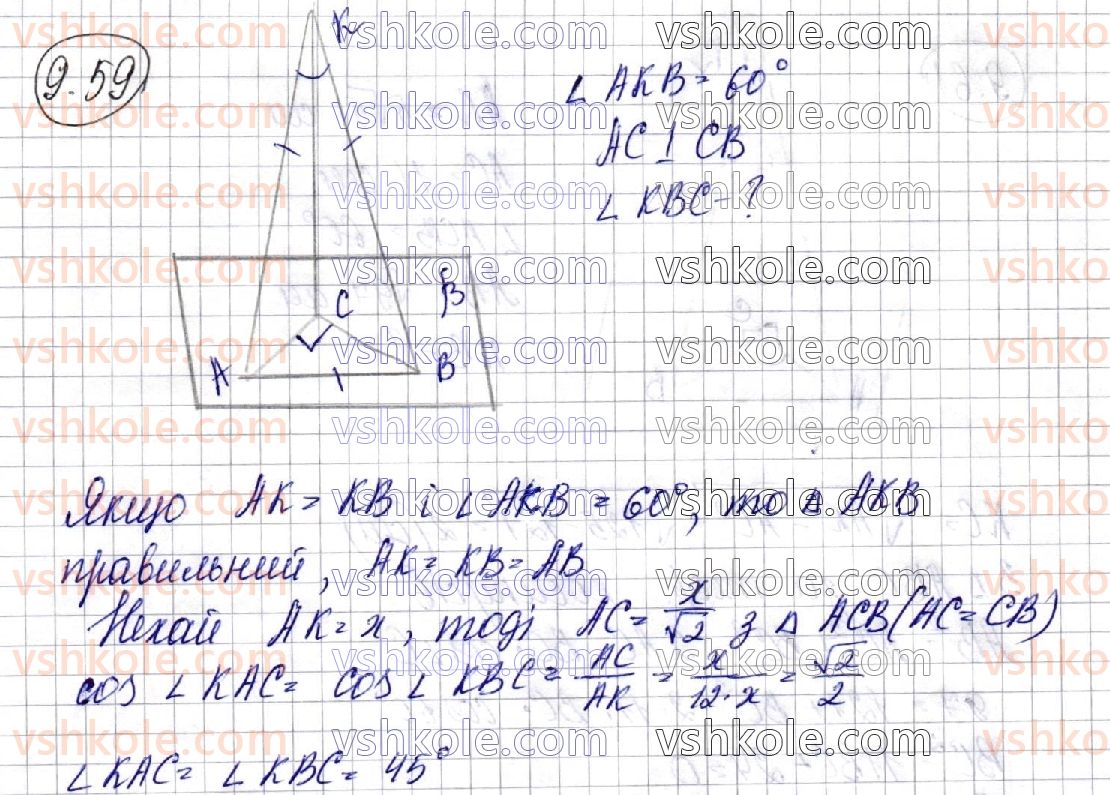 9.59
K
∠ AKB = 60°
AC ⊥ CB
∠ KBC - ?
C
β
A
B
Якщо AK = KB і ∠ AKB = 60°, то △ AKB
правильний, AK = KB = AB
Нехай AK = x, тоді AC = x/√2 з △ ACB (AC = CB)
cos ∠ KAC = cos ∠ KBC = AC/AK = x/√2·x = √2/2
∠ KAC = ∠ KBC = 45°
vshkole.com